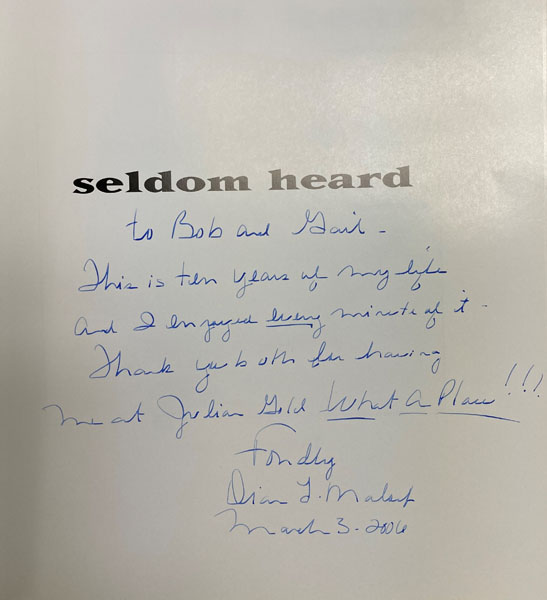 seldom heard
to Bob and Gail -
This is ten years of my life
and I enjoyed every minute of it -
Thank you both for having
me at Julian Gold What A Place!!!
Fondly
Dian L. Malouf
March 3. 2006